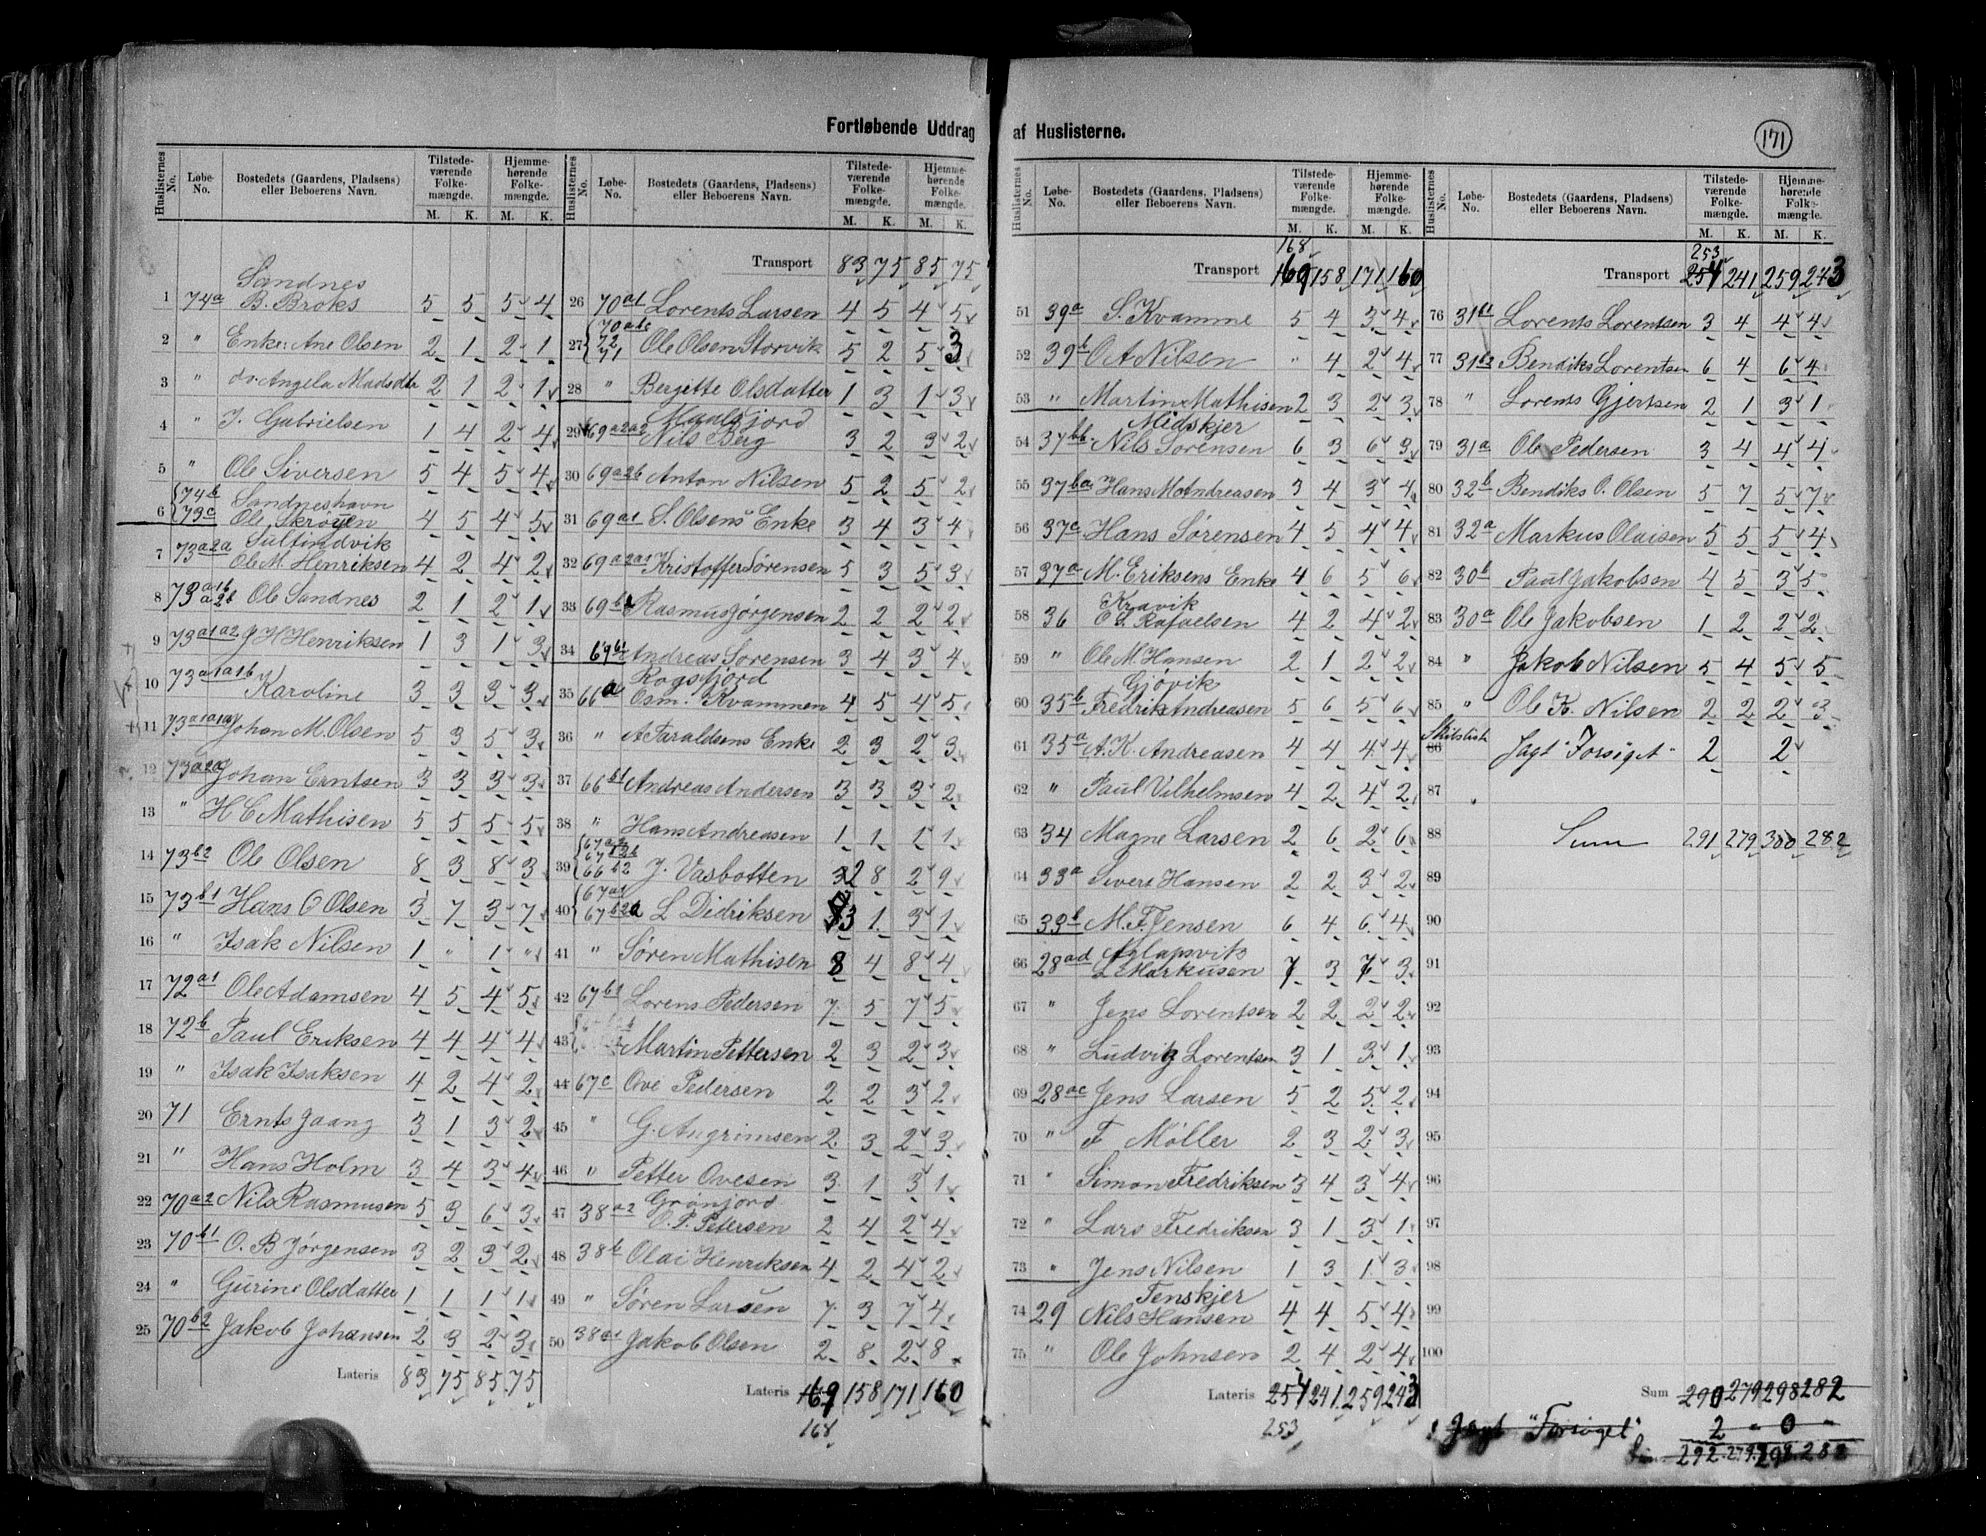 Fortløbende Uddrag af Huslisterne.
171
Huslisternes No. Løbe-No. Bostedets (Gaardens, Pladsens) eller Beboerens Navn. Tilstedeværende Folkemængde. M. K. Hjemmehørende Folkemængde. M. K.
Sandnes
1 74a B. Broks 5 5 5 4
2 " Enke: Ane Olsen 2 1 2 1
3 " do Angela Madsdtr 2 1 2 1
4 " J. Gabrielsen 1 4 2 4
5 " Ole Siversen 5 4 5 4
74b Sandneshavn
6 73c Ole Skrøven 4 5 4 5
Sultindvik
7 73a2a Ole M. Henriksen 4 2 4 2
8 73a1b a2b Ole Sandnes 2 1 2 1
9 73a1a2 J H Henriksen 1 3 1 3
10 73a1a1b Karoline 3 3 3 3
11 73a1a1a Johan M. Olsen 5 3 5 3
12 73a2a Johan Erntsen 3 3 3 3
13 " H C Mathisen 5 5 5 5
14 73b2 Ole Olsen 8 3 8 3
15 73b1 Hans O Olsen 3 7 3 7
16 " Isak Nilsen 1 " 1 "
17 72a1 Ole Adamsen 4 5 4 5
18 72b Paul Eriksen 4 4 4 4
19 " Isak Isaksen 4 2 4 2
20 71 Ernts Gaang 3 1 3 2
21 " Hans Holm 3 4 3 4
22 70a2 Nils Rasmusen 5 3 6 3
23 70b1 O. B Jørgensen 3 2 3 2
24 " Gurine Olsdatter 1 1 1 1
25 70b2 Jakob Johansen 2 3 2 3
Lateris 83 75 85 75
Huslisternes No. Løbe-No. Bostedets (Gaardens, Pladsens) eller Beboerens Navn. Tilstedeværende Folkemængde. M. K. Hjemmehørende Folkemængde. M. K.
Transport 83 75 85 75
26 70a1 Lorents Larsen 4 5 4 5
70a1c
27 72 71 Ole Olsen Storvik 5 2 5 3
28 " Bergette Olsdatter 1 3 1 3
29 69a2a2 Nils Berg 3 2 3 2
30 69a2b Anton Nilsen 5 2 5 2
31 69a1 S. Olsens Enke 3 4 3 4
32 69a2a1 Kristoffer Sørensen 5 3 5 3
33 69b Rasmus Jørgensen 2 2 2 2
34 69b1 Andreas Sørensen 3 4 3 4
Rogsfjord
35 66a Osm. Kvammen 4 5 4 5
36 " A Taraldsens Enke 2 3 2 3
37 66b1 Andreas Andersen 3 3 3 2
38 " Hans Andreasen 1 1 1 1
67a2
67b2b
39 66b2 J. Vasbotten 2 8 2 9
67a1
40 67b2a L Didriksen 3 1 3 1
41 " Søren Mathisen 8 4 8 4
42 67b1 Lorens Pedersen 7 5 7 5
43 Martin Pettersen 2 3 2 3
44 67c Ove Pedersen 2 2 3 2
45 " G. Angrimsen 2 3 2 3
46 " Petter Ovesen 3 1 3 1
Grønjord
47 38a2 O. P. Petersen 2 4 2 4
48 38b Olai Henriksen 4 2 4 2
49 " Søren Larsen 7 3 7 4
50 38a1 Jakob Olsen 2 8 2 8
Lateris 169 158 171 160
168
Huslisternes No. Løbe-No. Bostedets (Gaardens, Pladsens) eller Beboerens Navn. Tilstedeværende Folkemængde. M. K. Hjemmehørende Folkemængde. M. K.
168
Transport 169 158 171 160
51 39a S. Kvamme 5 4 3 4
52 39b O A Nilsen " 4 2 4
53 " Martin Mathisen 2 3 2 3
Midskjer
54 37bb Nils Sørensen 6 3 6 3
55 37ba Hans M. Andreasen 3 4 3 4
56 37c Hans Sørensen 4 5 4 4
57 37a M. Eriksens Enke 4 6 5 6
Kravik
58 36 E S Rafaelsen 4 2 4 2
59 " Ole M. Hansen 2 1 2 2
Gjøvik
60 35b Fredrik Andreasen 5 6 5 6
61 35a A. K. Andreasen 4 4 4 4
62 " Paul Vilhelmsen 4 2 4 2
63 34 Magne Larsen 2 6 2 6
64 33a Sivert Hansen 2 2 3 2
65 33b M. F. Jensen 6 4 6 4
Aglapsvik
66 28ad L Markusen 7 3 7 3
67 " Jens Lorentsen 2 2 2 2
68 " Ludvig Lorentsen 3 1 3 1
69 28ac Jens Larsen 5 2 5 2
70 " F Møller 2 3 2 3
71 " Simon Fredriksen 3 4 3 4
72 " Lars Fredriksen 3 1 3 1
73 " Jens Nilsen 1 3 1 3
Tenskjer
74 29 Nils Hansen 4 4 5 4
75 " Ole Johnsen 2 4 2 4
Lateris 254 241 259 243
253
Huslisternes No. Løbe-No. Bostedets (Gaardens, Pladsens) eller Beboerens Navn. Tilstedeværende Folkemængde. M. K. Hjemmehørende Folkemængde. M. K.
253
Transport 254 241 259 243
76 31b1 Lorents Lorentsen 3 4 4 4
77 31b2 Bendiks Lorentsen 6 4 6 4
78 " Lorents Gjertsen 2 1 3 1
79 31a Ole Pedersen 3 4 4 4
80 32b Bendiks O. Olsen 5 7 5 7
81 32a Markus Olaisen 5 5 5 4
82 30b Paul Jakobsen 4 5 3 5
83 30a Ole Jakobsen 1 2 2 2
84 " Jakob Nilsen 5 4 5 5
85 " Ole K. Nilsen 2 2 2 3
Skibsliste
86 Jagt "Forsøget" 2 2
87 "
88 Sum 291 279 300 282
89
90
91
92
93
94
95
96
97
98
99
100
Sum 290 279 298 282
1 Jagt "Forsøget" 2 - 0 -
292 279 298 282